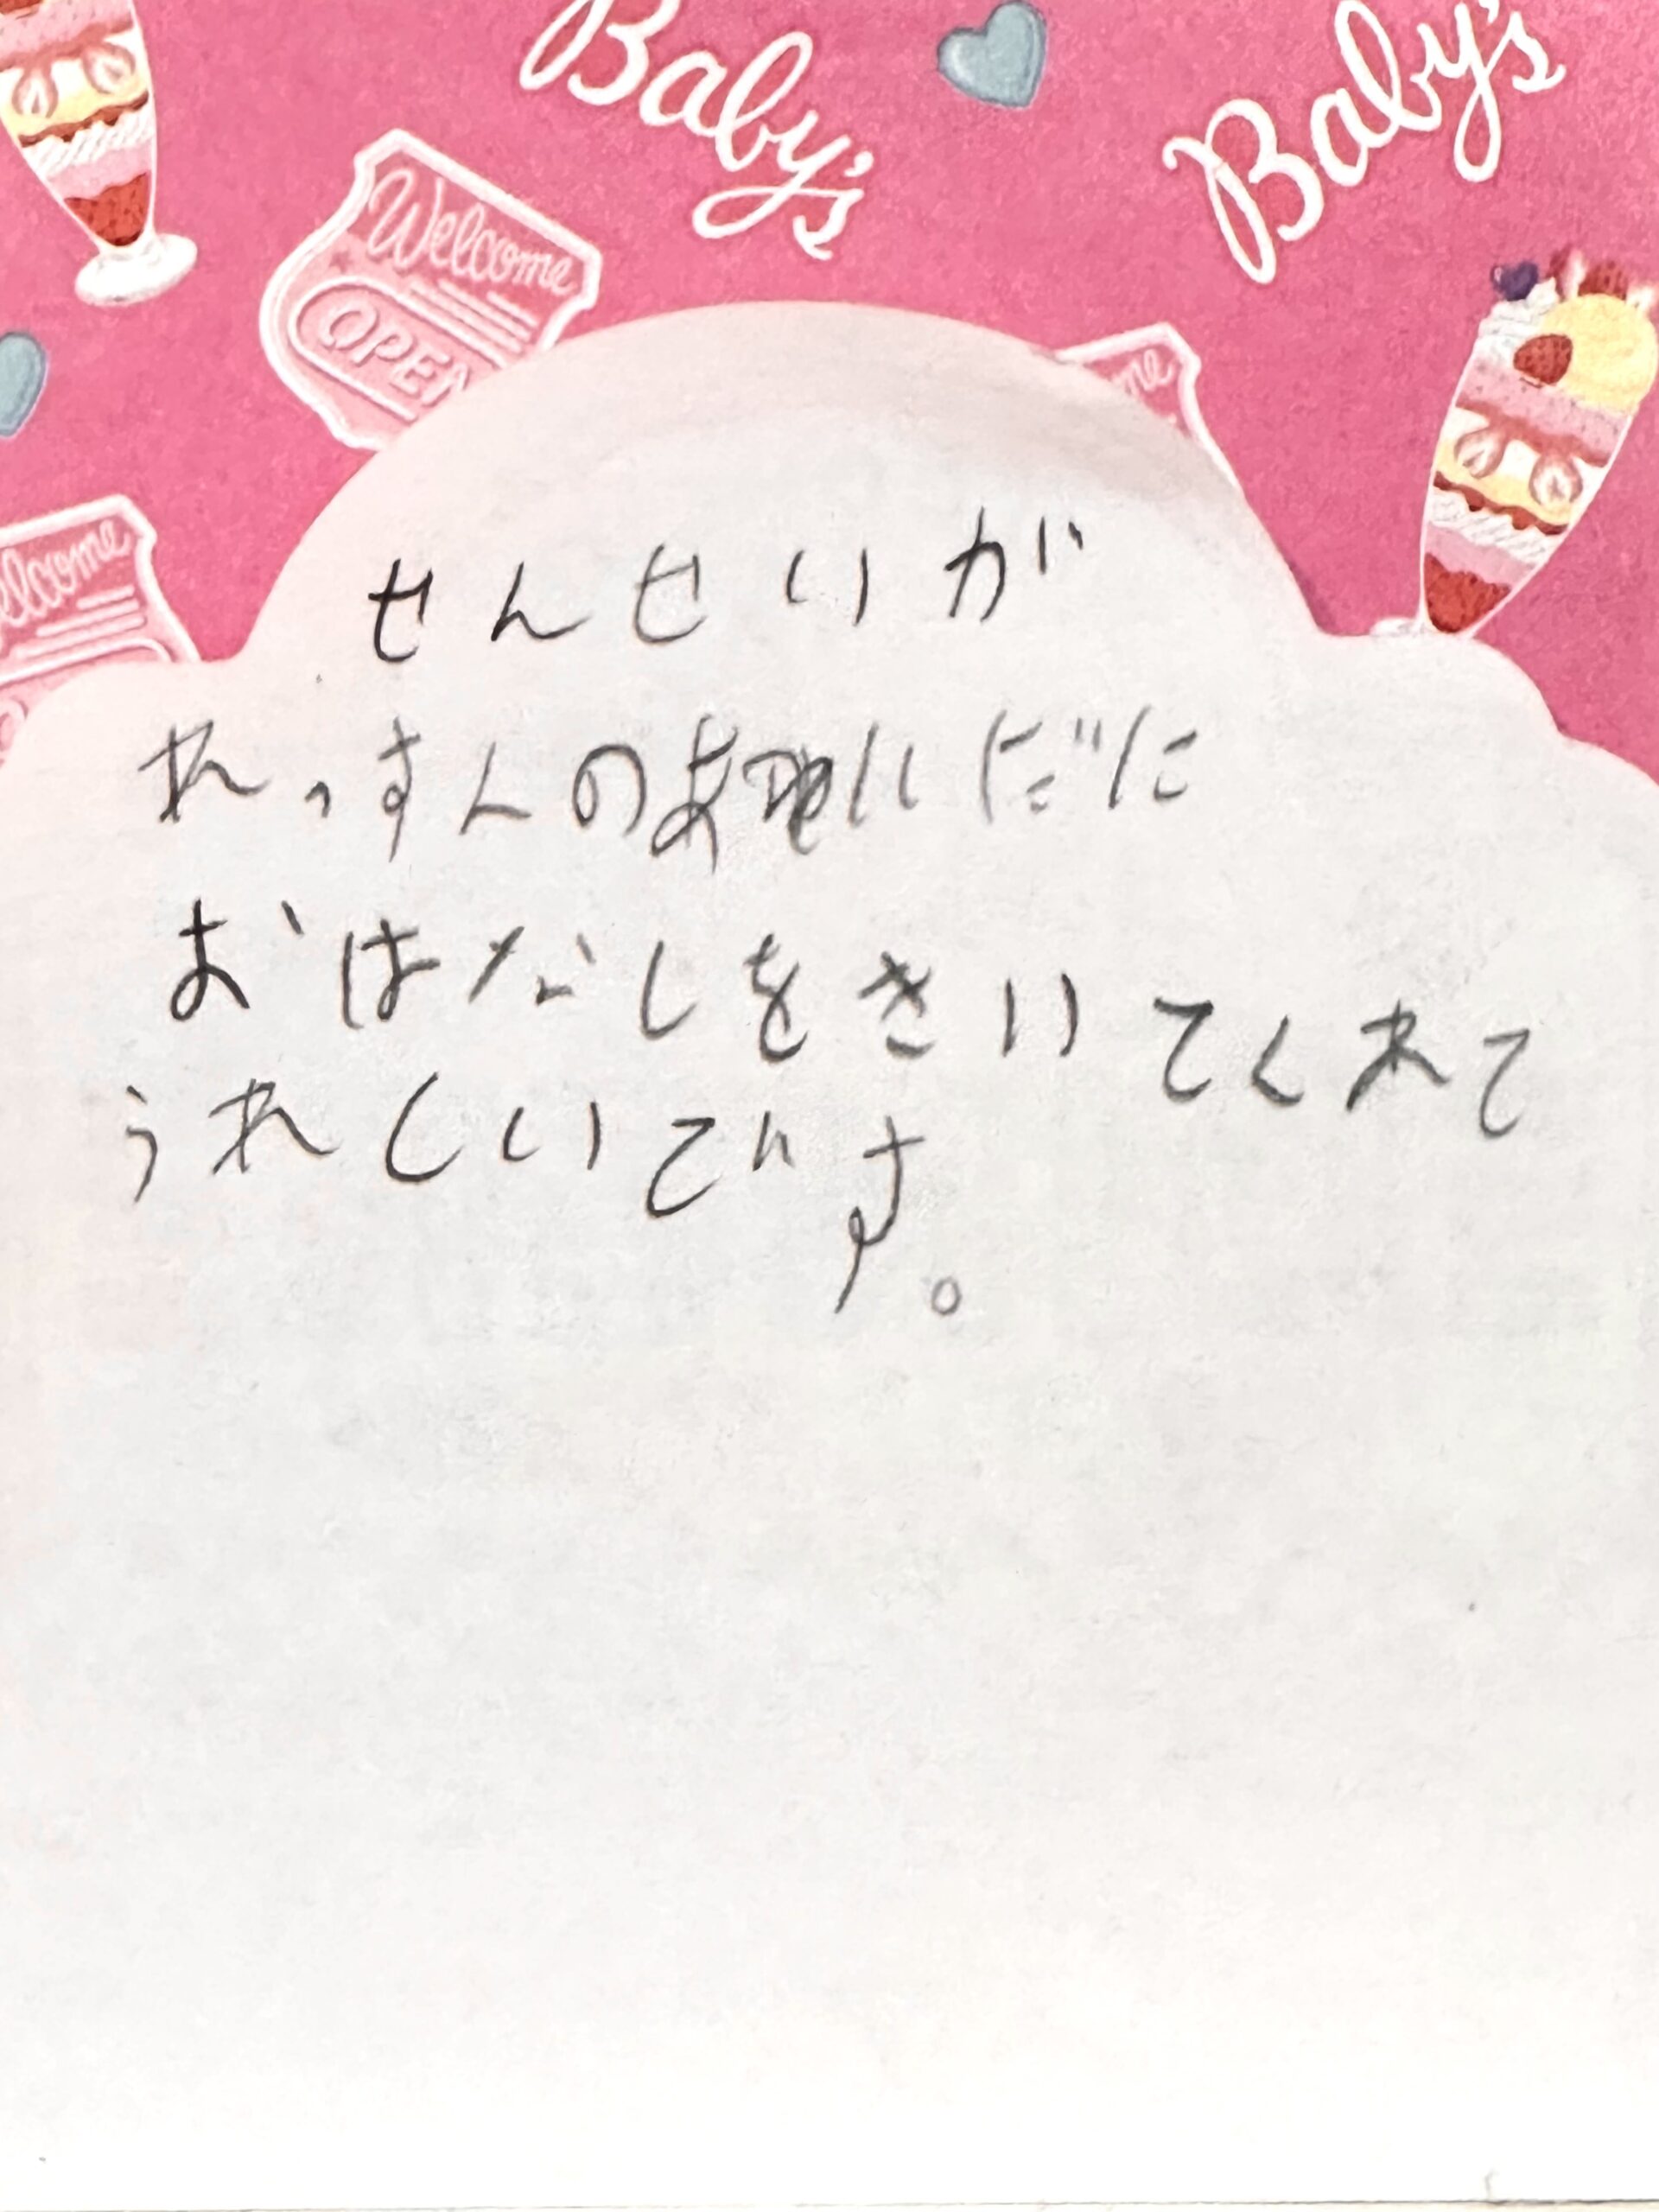 Baby's
Baby's
Welcome
OPEN
せんせいが
れっすんのあいだに
おはなしをきいてくれて
うれしいです。